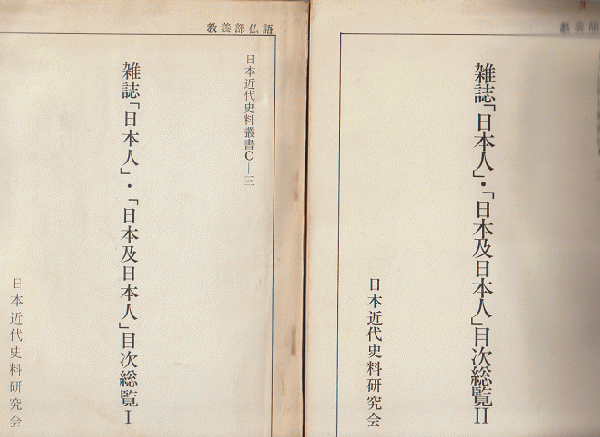 教養部仏語
日本近代史料叢書C—三
雑誌「日本人」・「日本及日本人」目次総覧I
日本近代史料研究会
教養部
雑誌「日本人」・「日本及日本人」目次総覧II
日本近代史料研究会